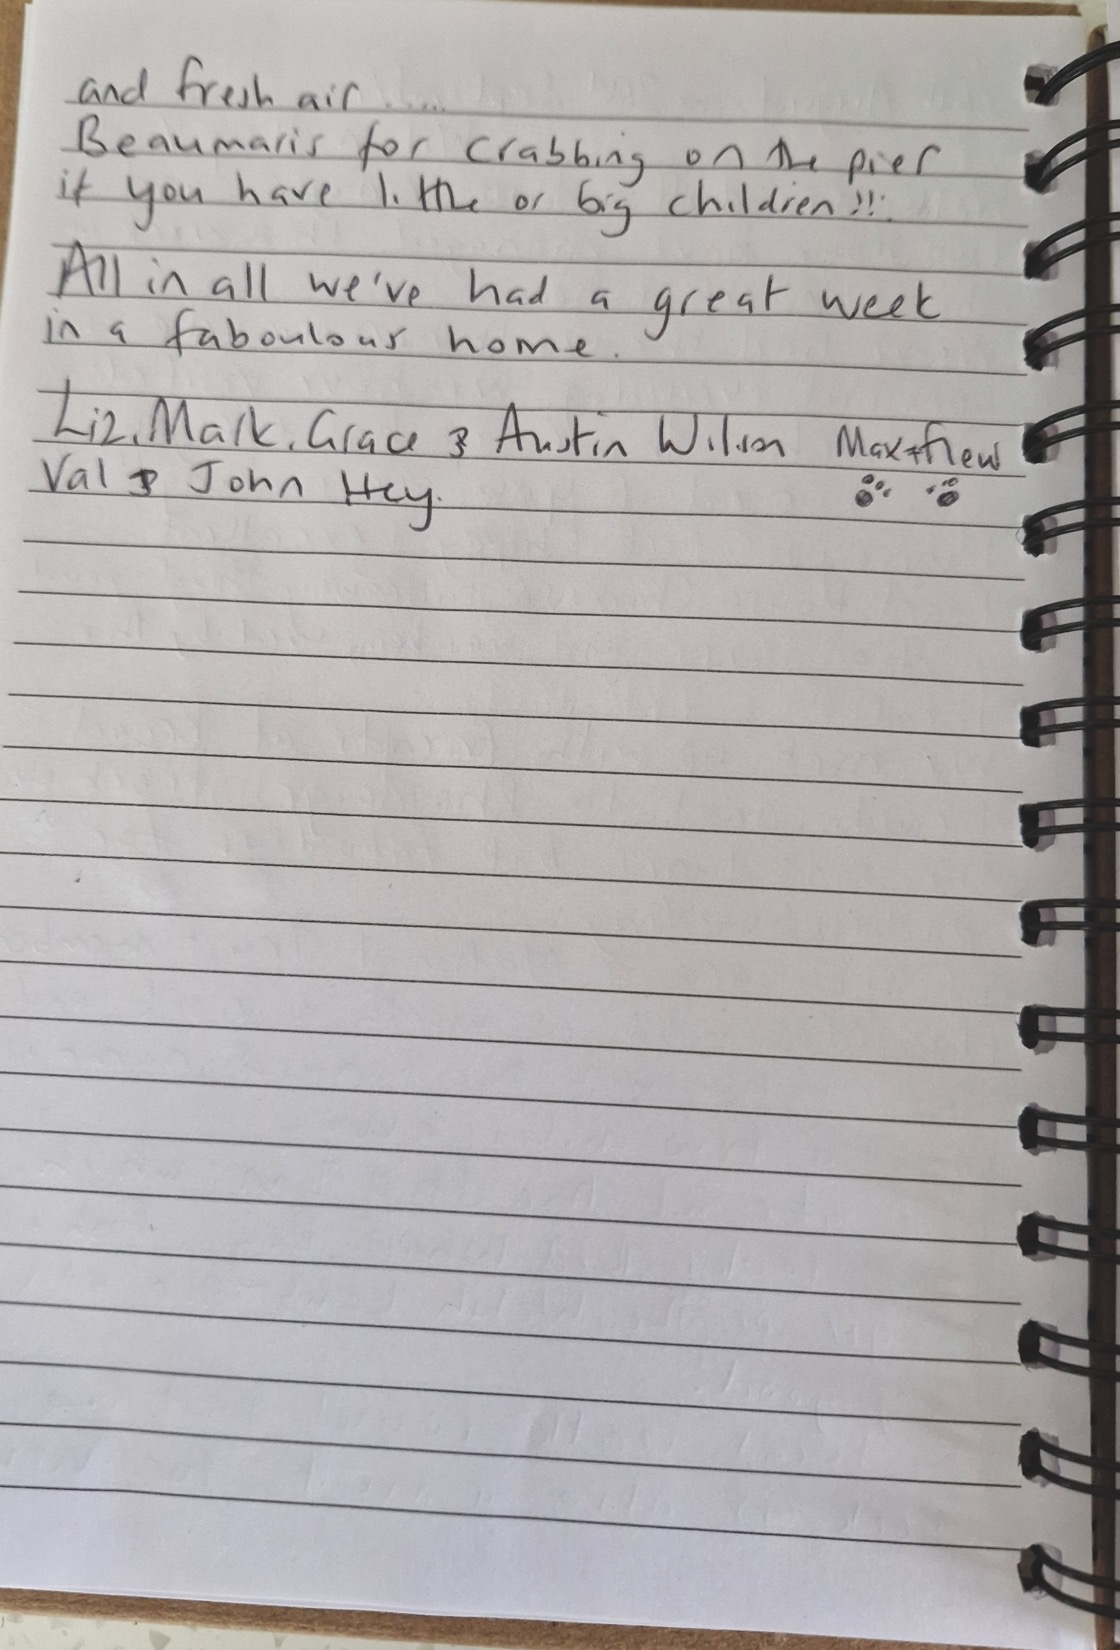 and fresh air .....
Beaumaris for crabbing on the pier
if you have little or big children !!!
All in all we've had a great week
in a faboulous home.
Liz, Mark, Grace & Austin Wilson Max +
Val & John Hey.